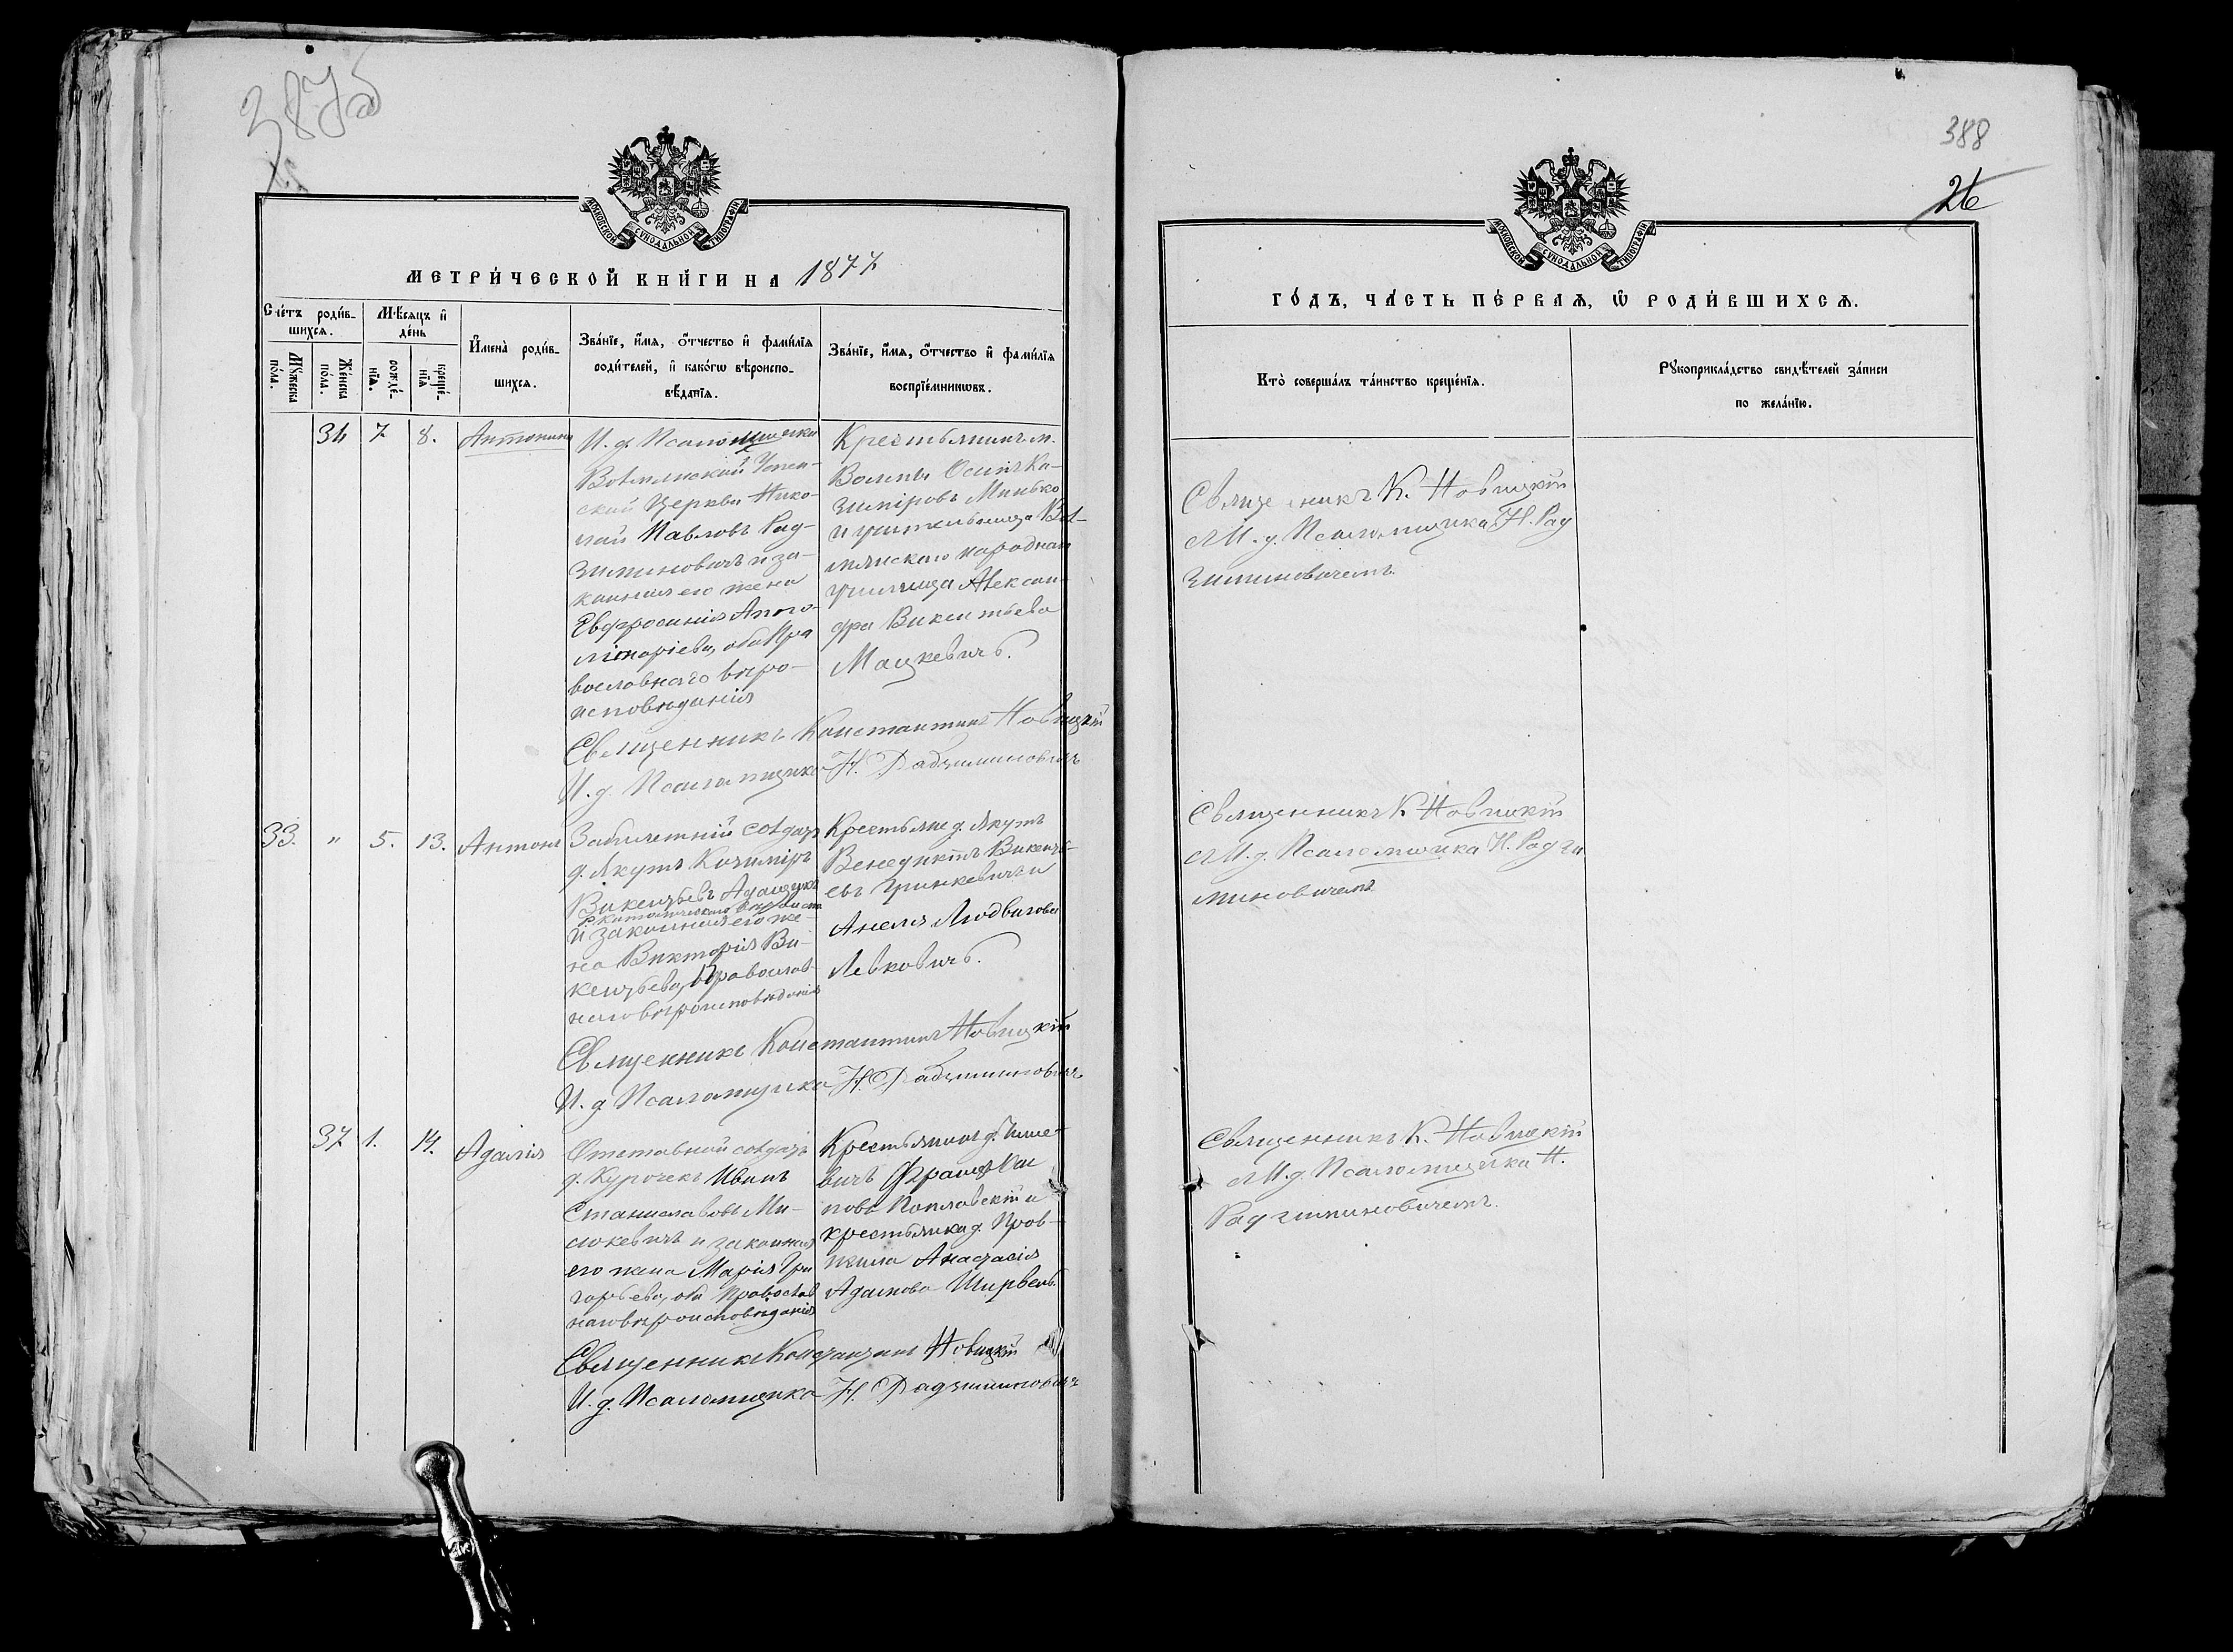 387об
МОСКОВСКОЙ СѴНОДАЛЬНОЙ ТИПОГРАФІИ
МЕТРИ́ЧЕСКОЙ КНИ́ГИ НА 1877
Сче́тъ роди́в-
шихся.
Мѣ́сяцъ и҆
де́нь
Мꙋ́жеска по́ла.
Же́нска по́ла.
рожде́-
нїѧ.
креще́-
нїѧ
И҆мена̀ роди́в-
шихсѧ.
Зва́нїе, и҆́мѧ, ѻ҆́тчество и҆ фами́лїѧ
роди́телей, и҆ како́гѡ вѣроиспо-
вѣ́данїѧ.
Зва́нїе, и҆́мѧ, ѻ҆́тчество и҆ фами́лїѧ
воспрїе́мникѡвъ.
36 7 8. Антонина
И. д. Псаломщика
Волпянской Успен-
ской Церкви Нико-
лай Павловъ Рад-
зиминовичъ и за-
конная его жена
Евфросинія Аппо-
лінаріева, оба Пра
вославнаго вѣро-
исповѣданія
Крестьянинъ м.
Волпы Осипъ Ка-
зиміровъ Минько
и учительница Вол-
пянскаго народнаго
училища Алексан-
дра Викентьева
Мацкевичъ.
Священникъ Константинъ Новицкій
И. д. Псаломщика Н. Радзиминовичъ
33. " 5. 13. Антонъ
Забилетній солдатъ
д. Якутъ Казиміръ
Викентьевъ Адащикъ
и законная его же-
на Викторія Ви-
кентьева, Православ-
наго вѣроисповѣданія
Крестьяне д. Якутъ
Венедиктъ Викенть-
евъ Гринкевичъ и
Анеля Людвигова
Левковичъ.
Священникъ Константинъ Новицкій
И. д. Псаломщика Н. Радзиминовичъ
37 1. 14. Адамія
Отставной солдатъ
д. Курочекъ Иванъ
Станиславовъ Ми-
слокевичъ и законная
его жена Марія Гри
горьева, оба Православ
наго вѣроисповѣданія
Крестьянинъ д.
вичъ Францъ
повъ Поплавскій и
крестьянка д. Пров-
жила Анастасія
Адамова
Священникъ Константинъ Новицкій
И. д. Псаломщика Н. Радзиминовичъ
388
26
МОСКОВСКОЙ СѴНОДАЛЬНОЙ ТИПОГРАФІИ
ГО́ДЪ, ЧА́СТЬ ПЕ́РВАѦ, Ѡ҆ РОДИ́ВШИХСѦ.
Кто̀ соверша́лъ та́инство креще́нїѧ.
Рꙋкоприкла́дство свидѣ́телей за́писи
по жела́нїю.
Священникъ К. Новицкій
съ И. д. Псаломщика Н. Рад
зиминовичемъ.
Священникъ К. Новицкій
съ И. д. Псаломщика Н. Радзи
миновичемъ
Священникъ К. Новицкій
съ И. д. Псаломщика Н.
Радзиминовичемъ.